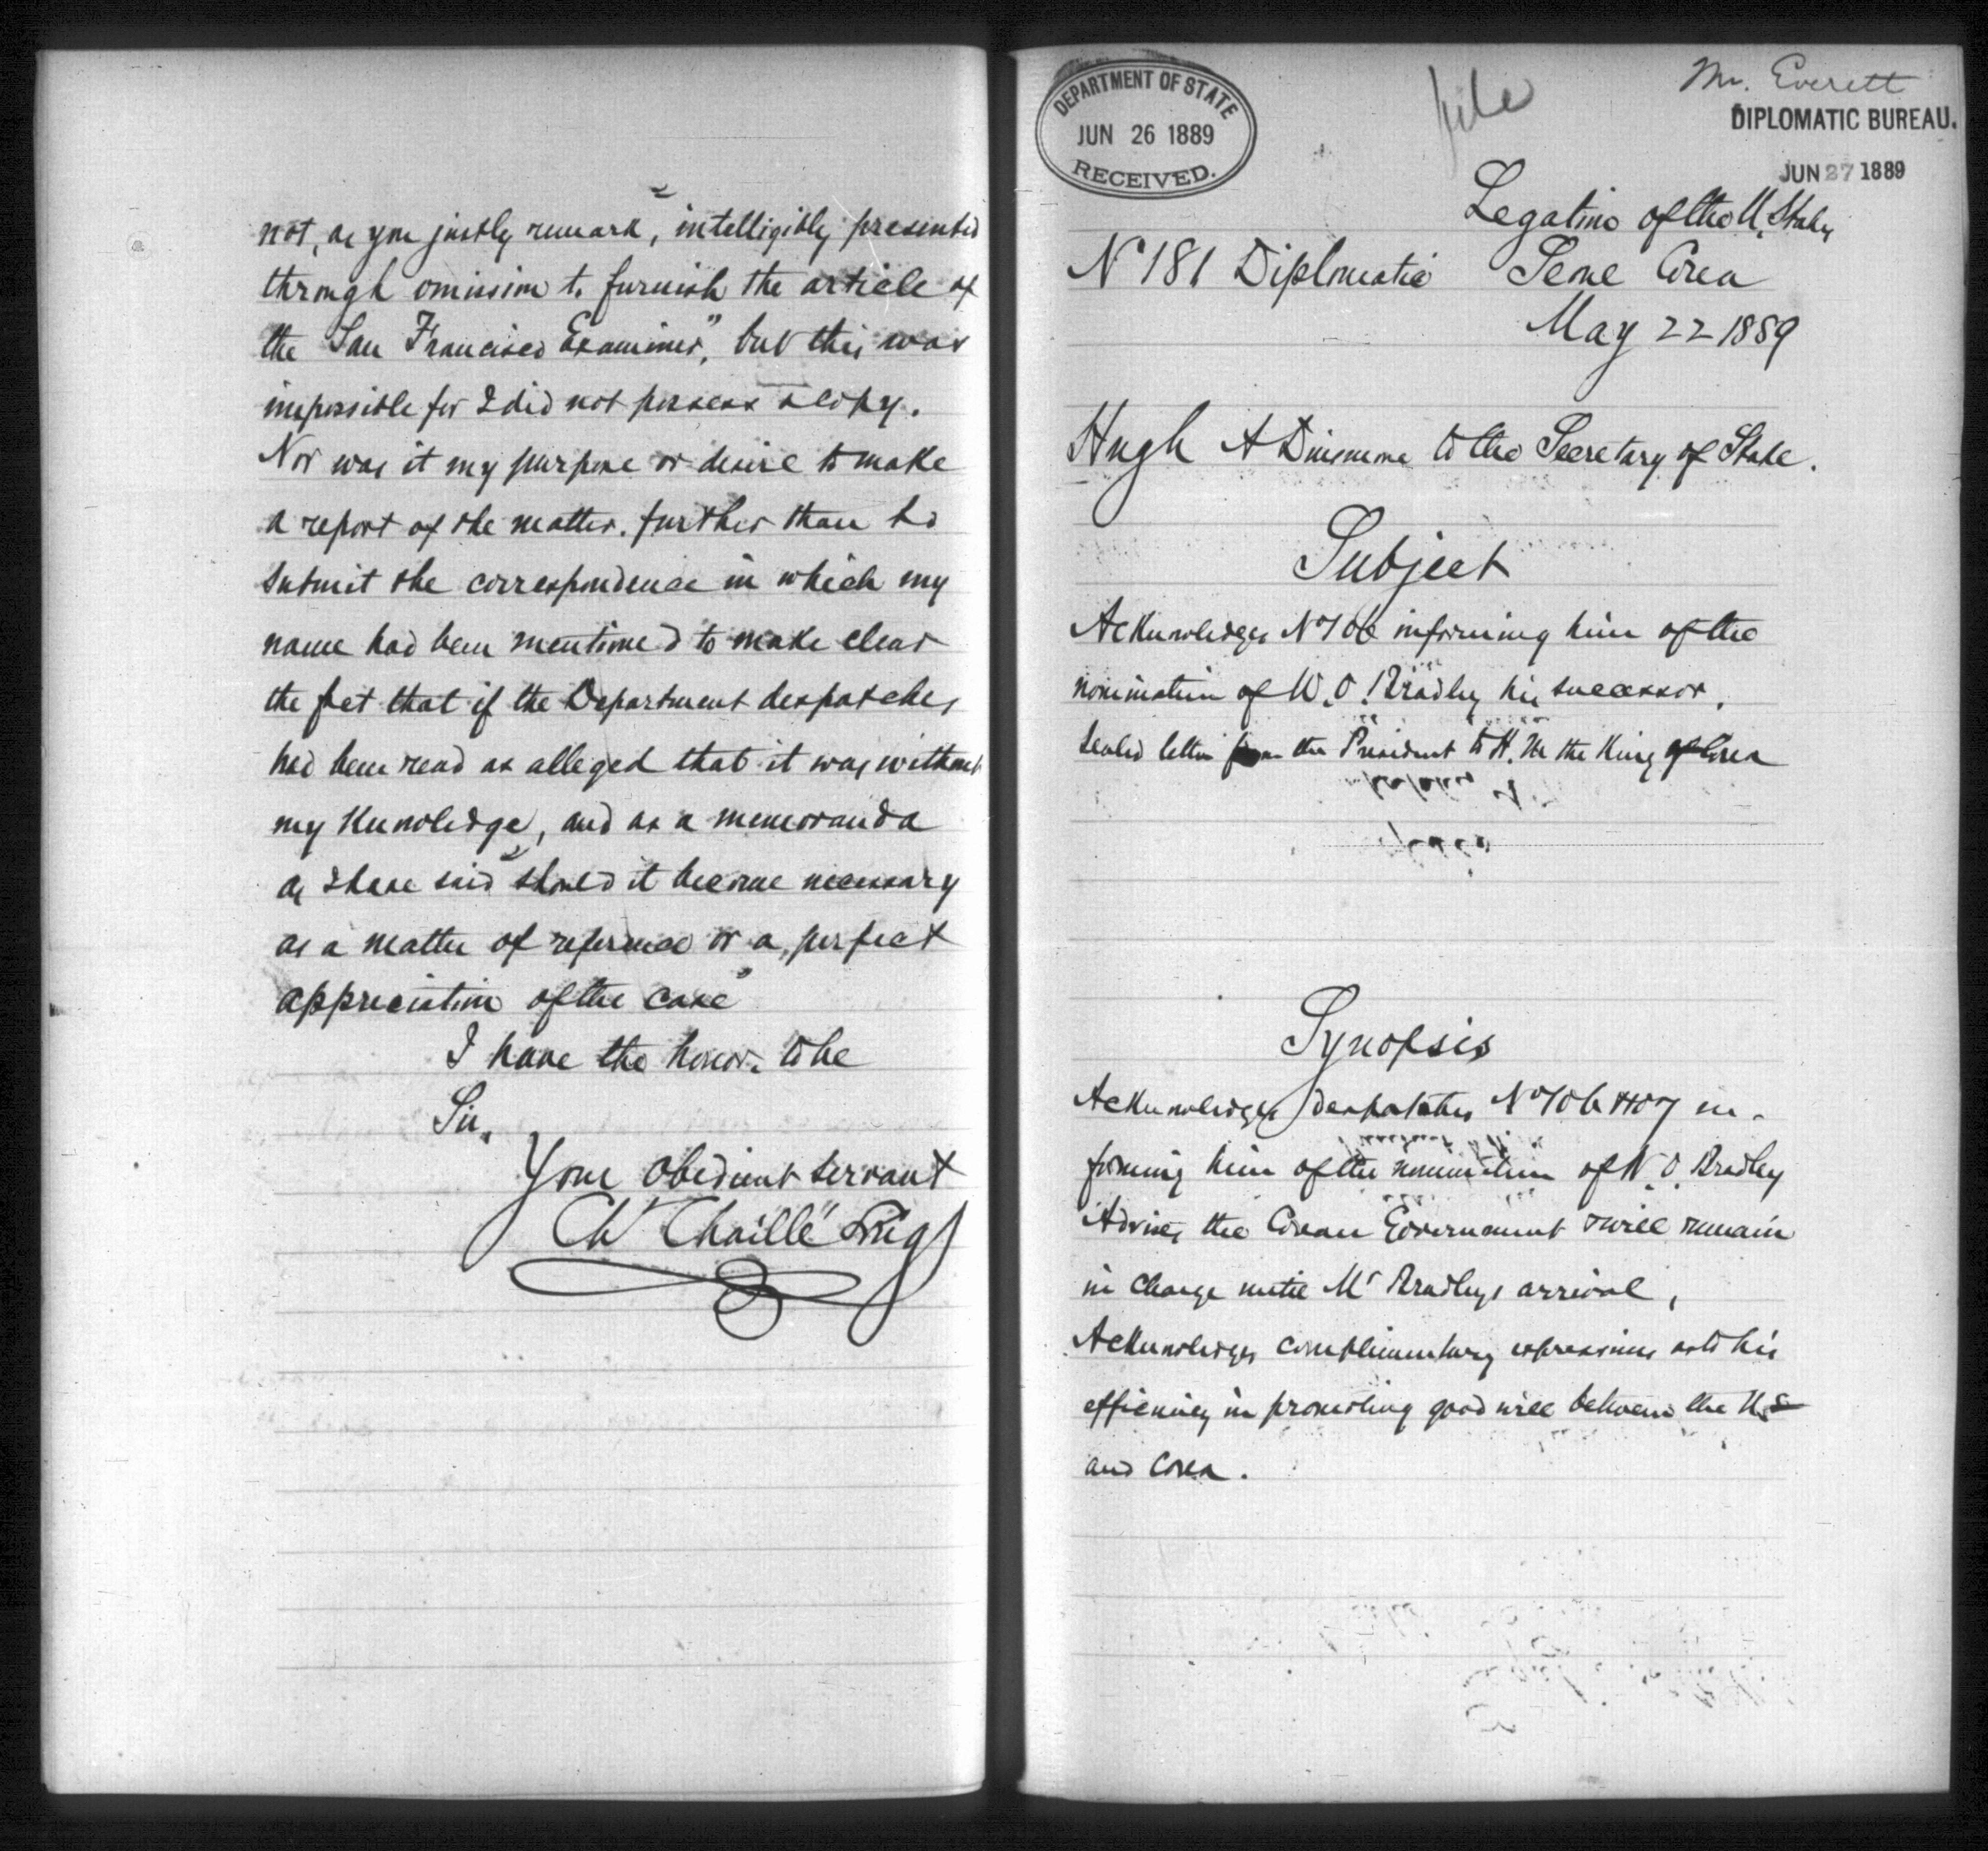 not, as you justly remark, "intelligibly presented
through omission to furnish the article of
the San Francisco Examiner", but this was
impossible for I did not possess a copy.
Nor was it my purpose or desire to make
a report of the matter, further than to
submit the correspondence in which my
name had been mentioned to make clear
the fact that if the Department despatches
had been read as alleged that it was without
my knowledge, and as a memoranda
as I have said "should it become necessary
as a matter of reference or a perfect
appreciation of the case"
I have the honor to be
Sir,
Your obedient servant
Ch Chaillé Long
DEPARTMENT OF STATE
JUN 26 1889
RECEIVED.
file
Mr. Everett
DIPLOMATIC BUREAU.
JUN 27 1889
Legation of the U. States
No 181 Diplomatic Seoul Corea
May 22 1889
Hugh A Dinsmore to the Secretary of State.
Subject
Acknowledges No 106 informing him of the
nomination of W. O. Bradley his successor,
Sealed letter from the President to H. M the King of Corea
Synopsis
Acknowledges despatches No 106 & 107 in-
forming him of the nomination of W. O. Bradley
Advises the Corean Government & will remain
in charge until Mr Bradleys arrival,
Acknowledges complimentary expressions as to his
efficiency in promoting good will between the U.S
and Corea.